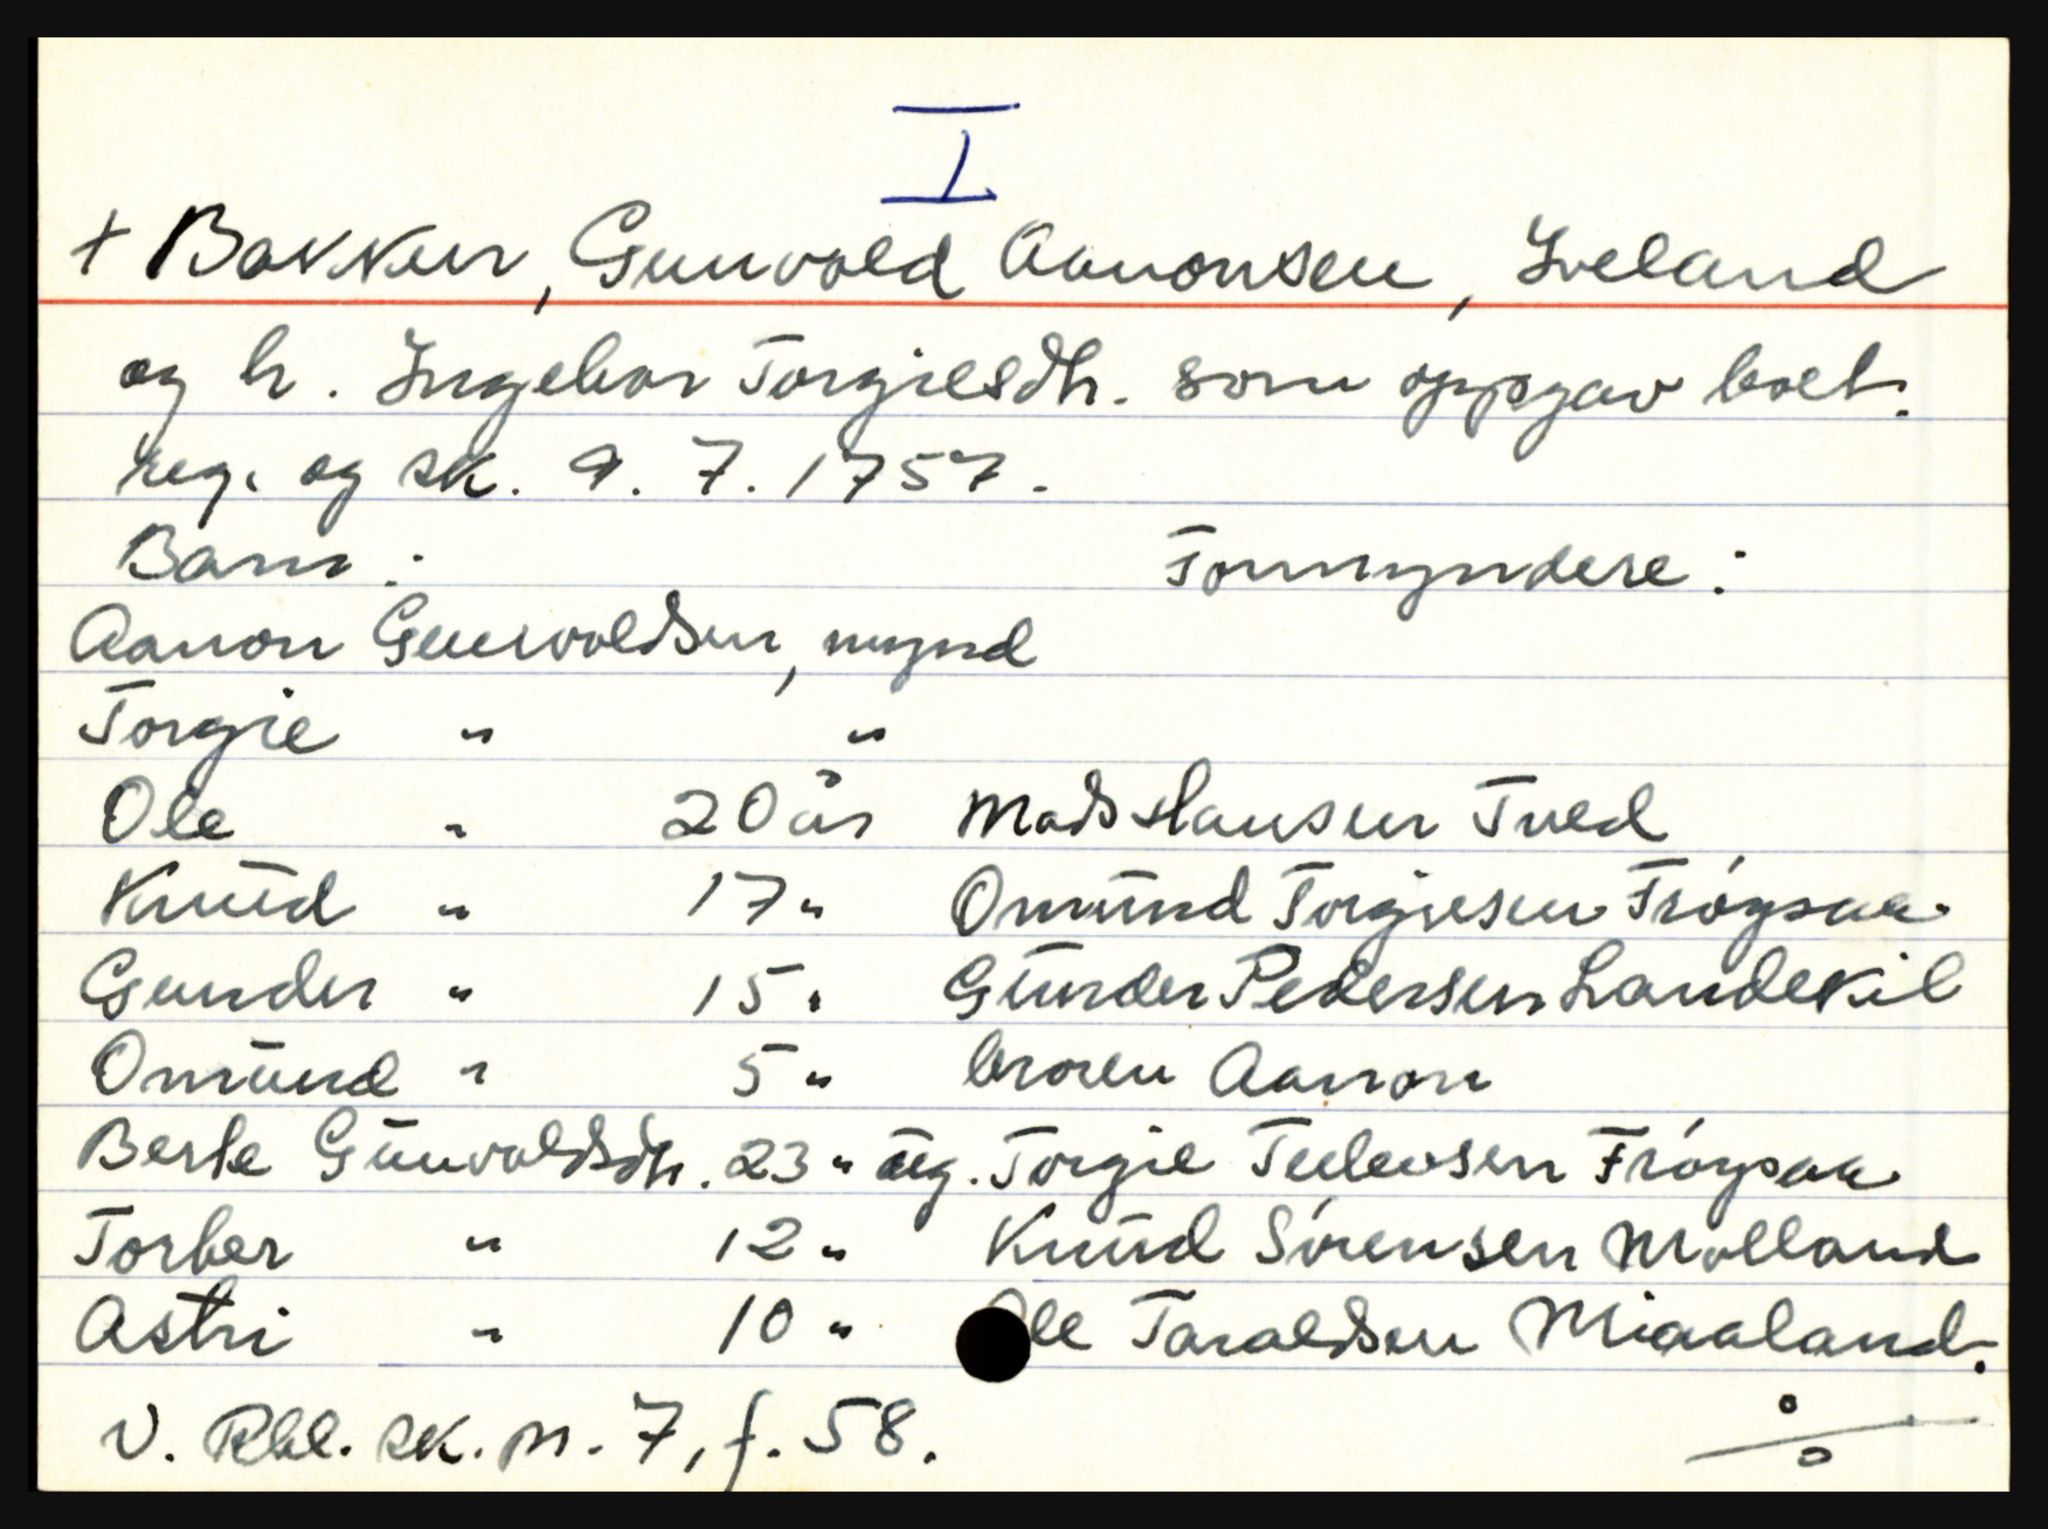 I
+ Bakken, Gunvold Aanonsen, Iveland
og h. Ingebor Torgiesdtr. som oppgav boet.
reg. og sk. 9. 7. 1757.
Barn: Formyndere:
Aanon Gunvoldsen, mynd
Torgie " "
Ole " 20 år Mads Hansen Tved
Knud " 17 " Omund Torgiesen Frøysaa
Gunder " 15 " Gunder Pedersen Landekil
Omund " 5 " broren Aanon
Berte Gunvoldsdtr. 23 " ug. Torgie Tellevsen Frøysaa
Torber " 12 " Knud Sørensen Molland
Astri " 10 " Ole Taraldsen Miaaland.
V. Rbl. sk. pr. 7, f. 58.